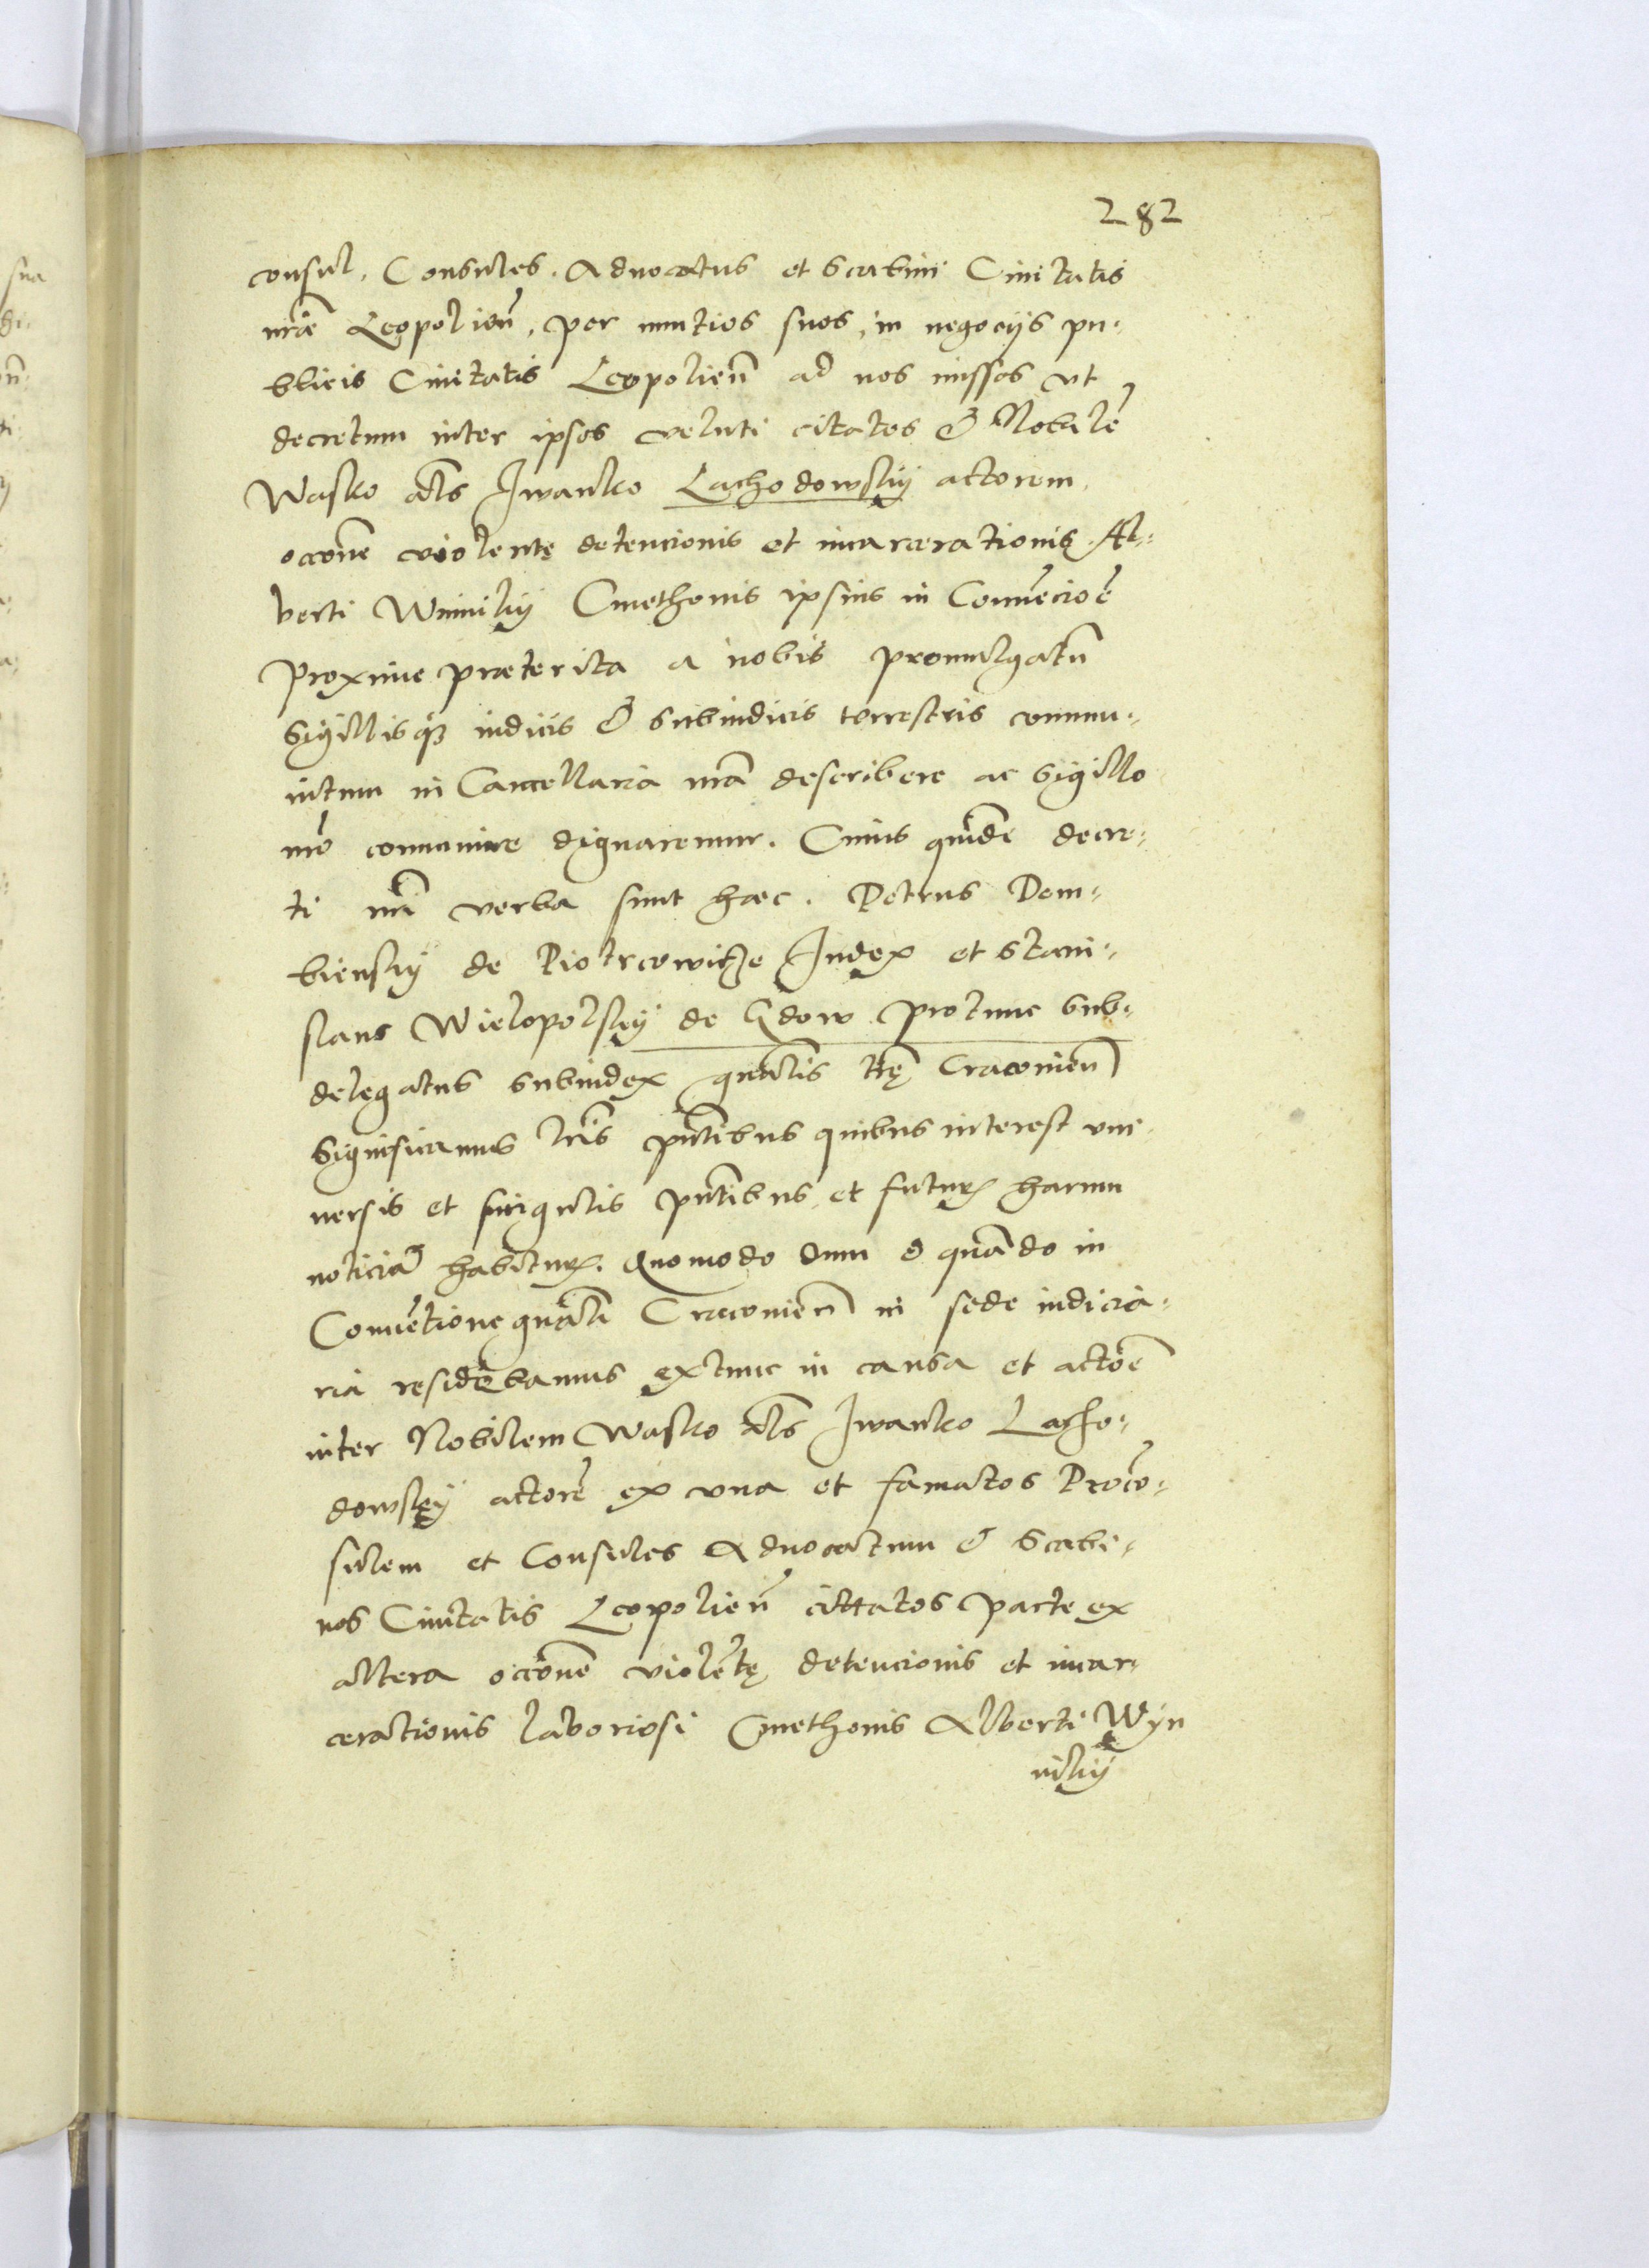 282
consul, Consules, Aduocatus et Scabini Ciuitatis
nrae Leopolien̄, per nuntios suos, in negocijs pu⸗
blicis Ciuitatis Leopolien̄ ad nos missos vt
decretum inter ipsos veluti citatos & Nobilē
Wasko als Iwanko Lachodowskij actorem,
occone violentę detencionis et incarcerationis Al⸗
berti Winnikij Cmethonis ipsius in Conuēcioē
Proxime praeterita a nobis promulgatū
Sigillisqꝫ iudicis & Subiudicis terrestris commu⸗
nitum in Cancellaria nrā describere ac Sigillo
nrō communire dignaremur. Cuius quidē decre⸗
ti nrī verba sunt haec. Petrus Dem⸗
bienskij de Piotrcowicze Iudex et Stani⸗
slaus Wielopolskij de Gdow protunc Sub⸗
delegatus Subiudex gnālis trę Cracouien̄
Significamus lrīs pn̄tibus quibus interest vni⸗
uersis et singulis pn̄tibus et futurꝭ harum
noticiā habiturꝭ. Quomodo dum & quādo in
Conuētione gnāli Cracouien̄ in sede iudicia⸗
ria residebamus extunc in causa et actōē
inter Nobilem Wasko als Iwanko Lacho⸗
dowskij actorē ex vna et famatos Procō⸗
sulem et Consules Aduocatum & Scabi⸗
nos Ciuitatis Leopolien̄ cittatos parte ex
altera occōne violētę detencionis et incar⸗
cerationis laboriosi Cmethonis Alberti Wyn
nikij